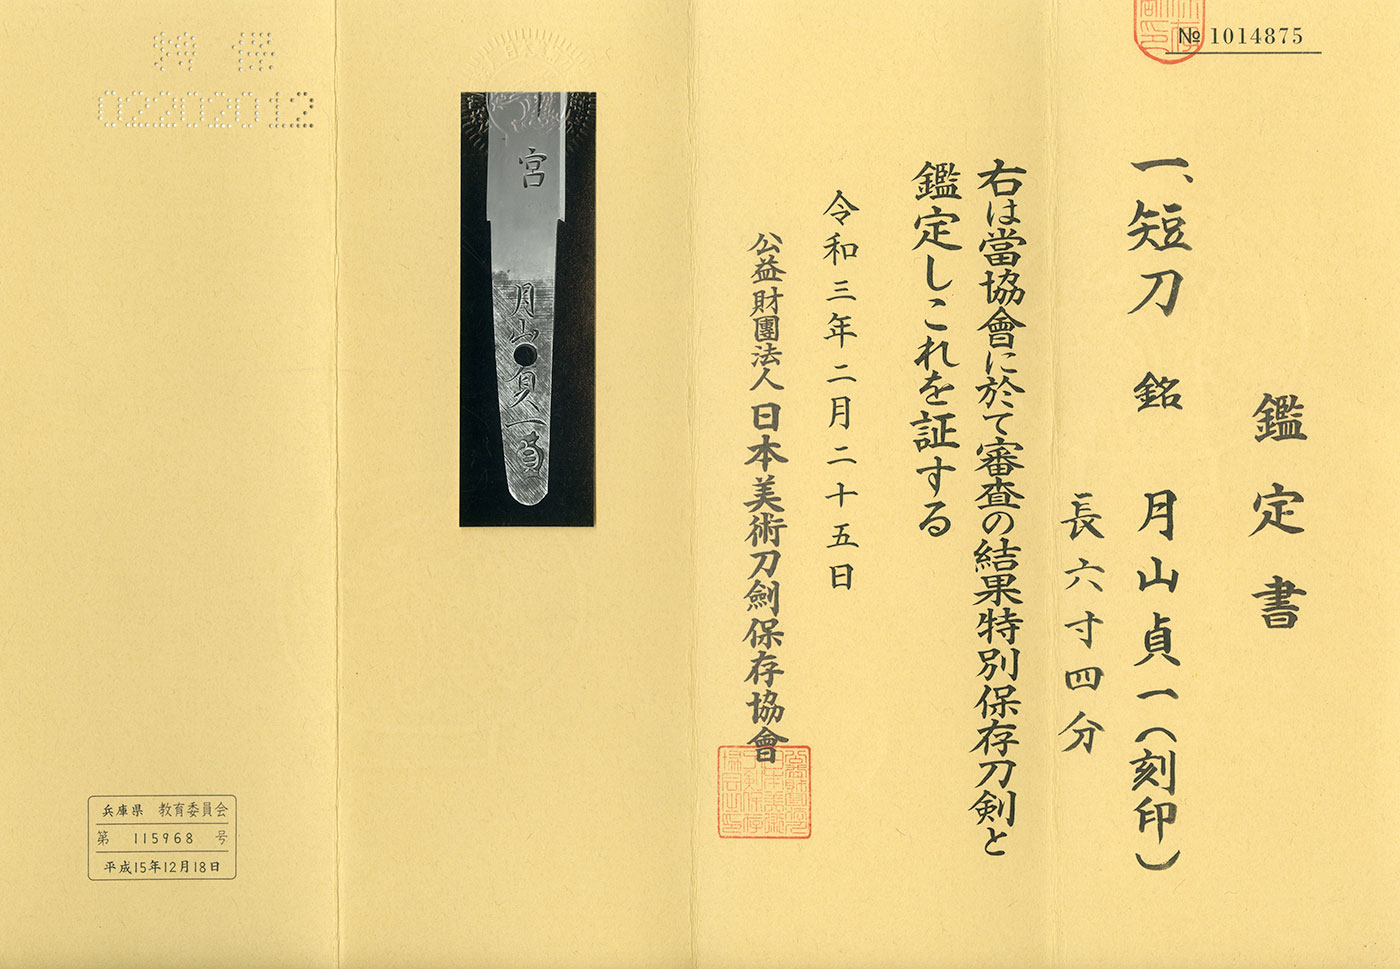 № 1014875
鑑定書
一、短刀 銘 月山貞一（刻印）
長六寸四分
右は當協會に於て審査の結果特別保存刀剣と
鑑定しこれを証する
令和三年二月二十五日
公益財團法人日本美術刀劍保存協會
宮
月山貞一
特保
02202012
兵庫県 教育委員会
第 115968 号
平成15年12月18日